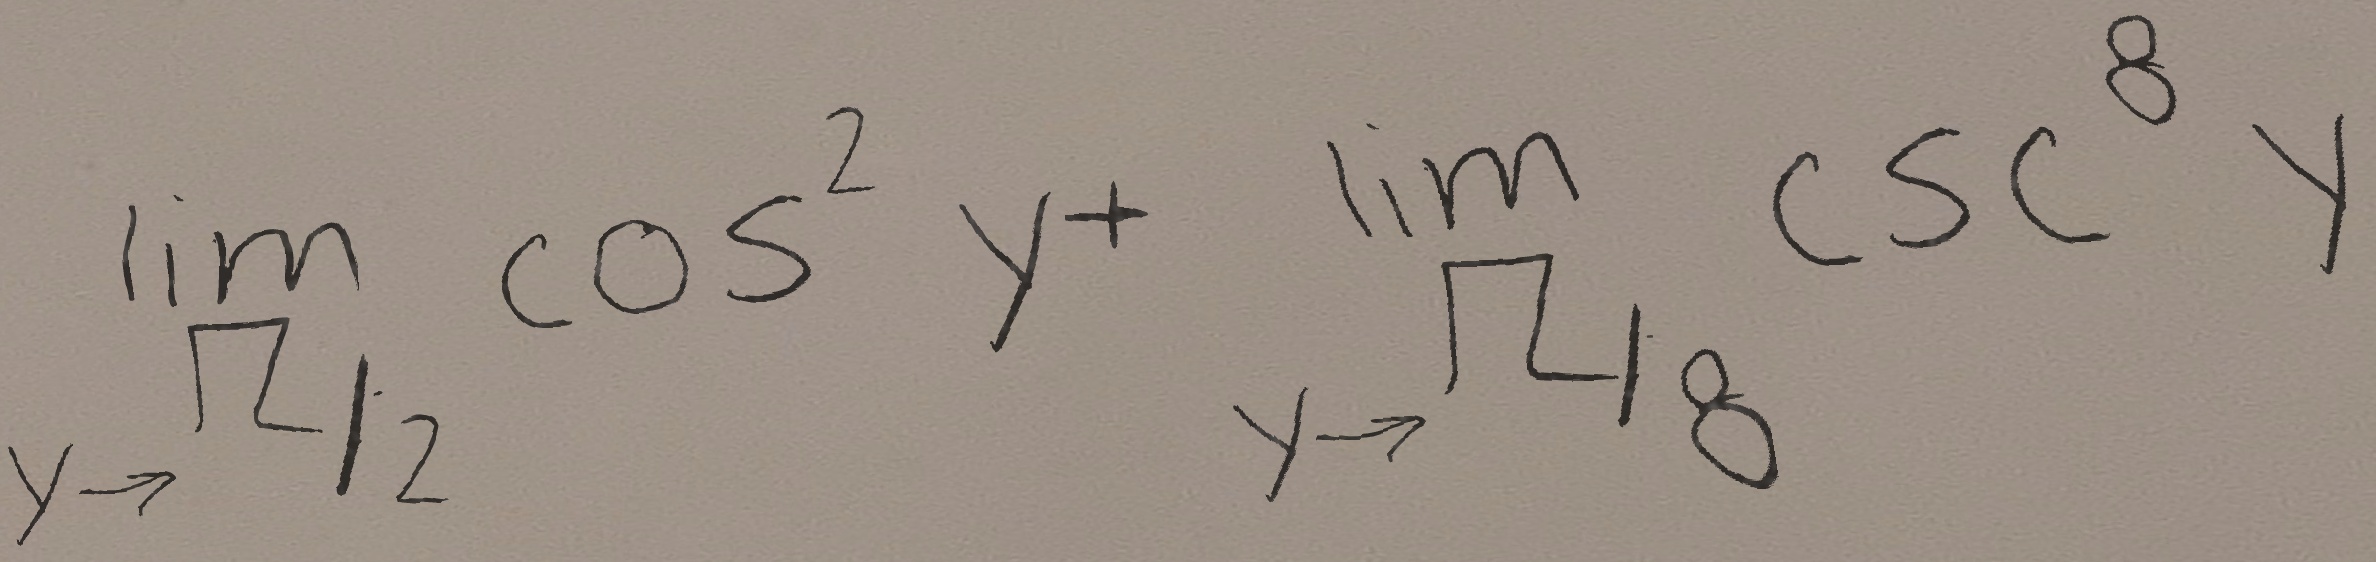 lim y→π/2 cos² y + lim y→π/8 csc⁸ y